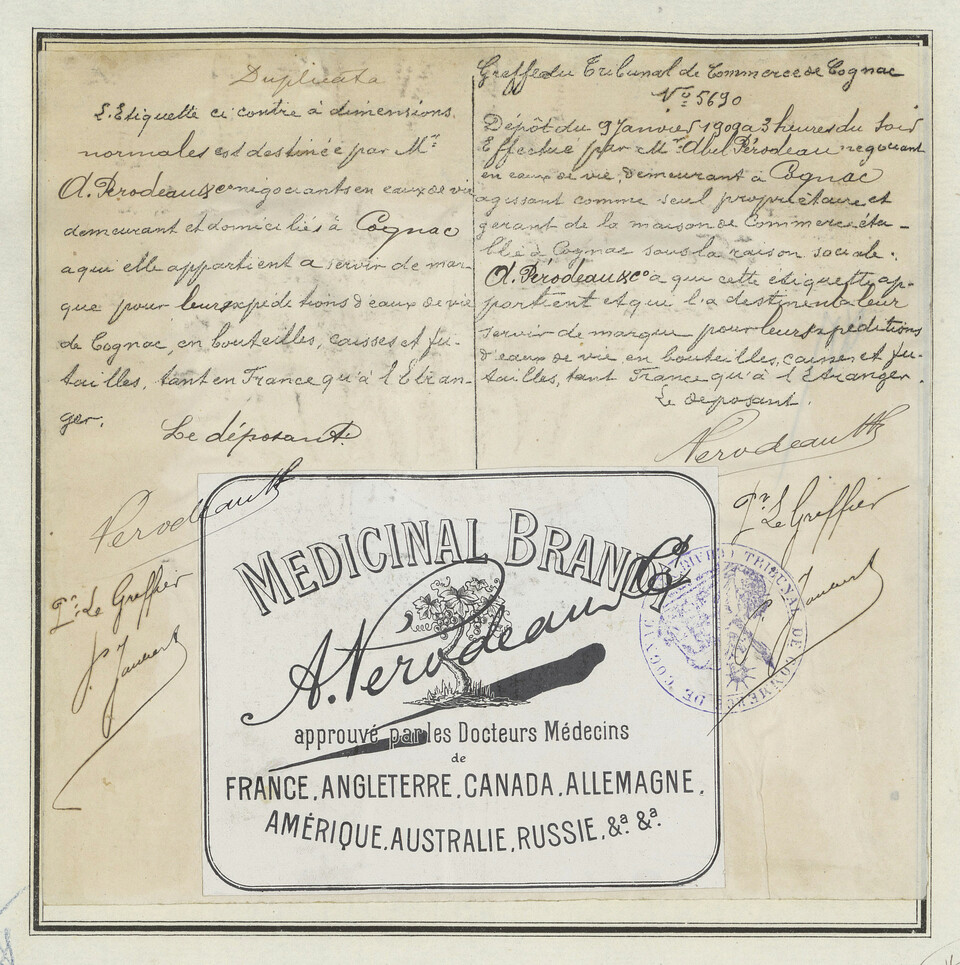 Duplicata
L'Etiquette ci contre à dimensions
normales est destinée par Mrs
A. Perodeau & Co négociants en eaux de vie
demeurant et domiciliés à Cognac
a qui elle appartient a servir de mar-
que pour leurs expéditions d'eaux de vie
de Cognac, en bouteilles, caisses et fu-
tailles, tant en France qu'à l'Etran-
ger.
Le déposant
Perodeau & Co
Pr. Le Greffier
Greffe du Tribunal de Commerce de Cognac
No 5690
Dépôt du 9 Janvier 1909 a 3 heures du Soir
Effectué par Mr Abel Pérodeau negociant
en eaux de vie, demeurant à Cognac
agissant comme seul propriétaire et
gerant de la maison de Commerce éta-
blie à Cognac sous la raison sociale.
A. Pérodeau & Co a que cette etiquette ap-
partient et qui l'a destinent a leur
servir de marque pour leurs expéditions
d'eaux de vie en bouteilles, caisses et fu-
tailles, tant France qu'à l'Etranger.
Le deposant.
Perodeau & Co
Pr. Le Greffier
MEDICINAL BRANDY
A. Perodeau & Co
approuvé par les Docteurs Médecins
de
FRANCE, ANGLETERRE, CANADA, ALLEMAGNE,
AMÉRIQUE, AUSTRALIE, RUSSIE, &a. &a.
TRIBUNAL DE COMMERCE DE COGNAC